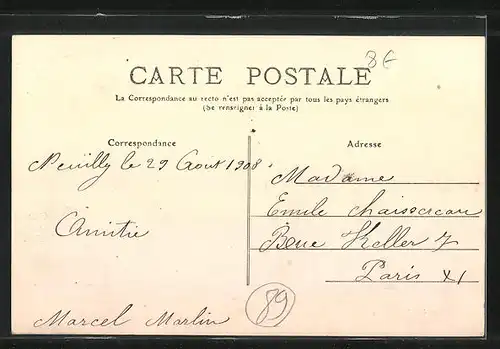 8€
CARTE POSTALE
La Correspondance au recto n'est pas acceptée par tous les pays étrangers
(Se renseigner à la Poste)
Correspondance
Adresse
Neuilly le 29 Aout 1908
Amitié
Marcel Marlin
Madame
Emile
Keller 7
Paris XI
89